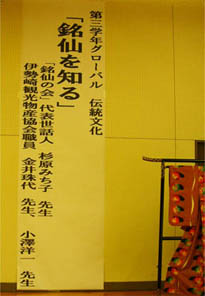 第三学年グローバル　伝統文化
「銘仙を知る」
「銘仙の会」代表世話人　杉原みち子　先生
伊勢崎観光物産協会職員　金井珠代　先生、　小澤洋一　先生